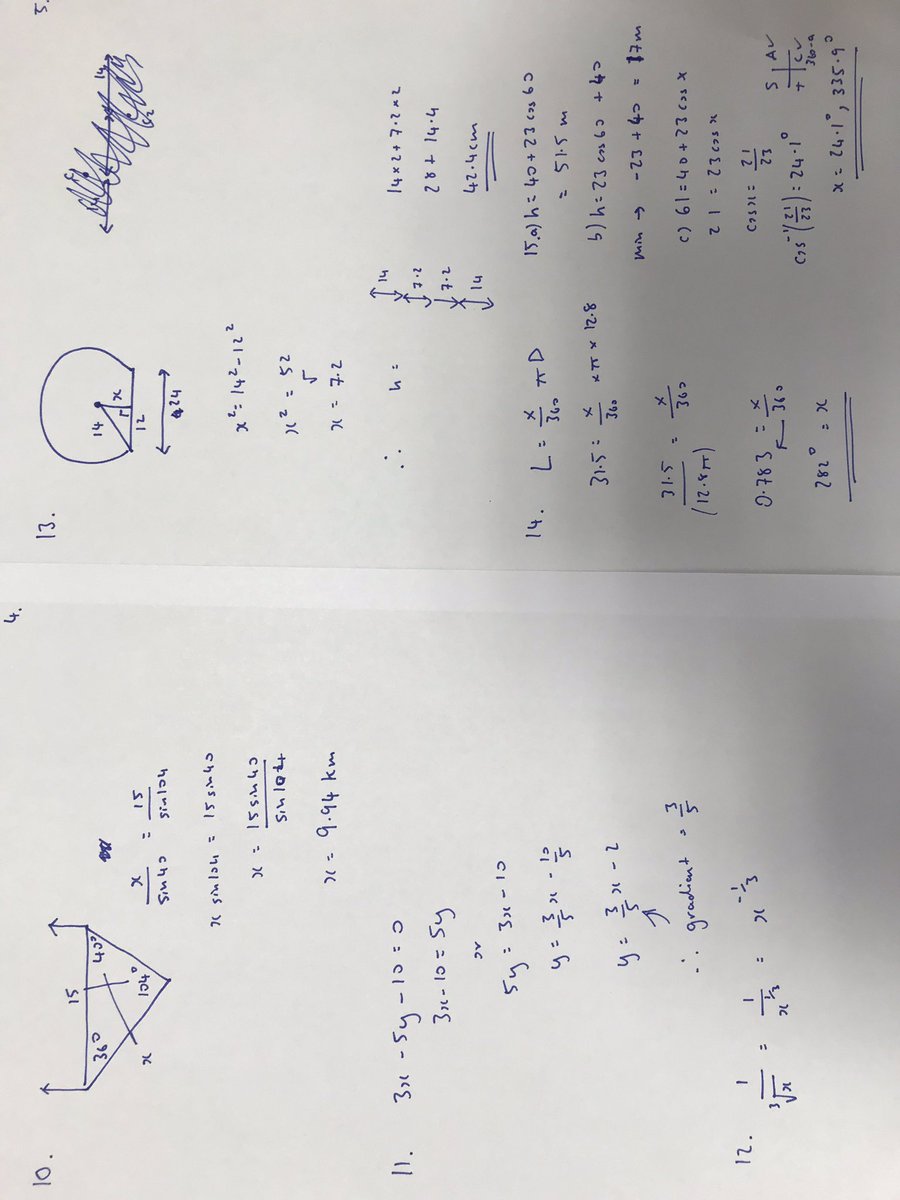 4.
10.
15
36°
40°
104°
x
x/sin40 = 15/sin104
x sin104 = 15 sin40
x = 15 sin40/sin104
x = 9.94 km
11. 3x - 5y - 10 = 0
3x - 10 = 5y
or
5y = 3x - 10
y = 3/5 x - 10/5
y = 3/5 x - 2
∴ gradient = 3/5
12. 1/∛x = 1/x^(1/3) = x^(-1/3)
5.
13.
14
x
12
24
x² = 14² - 12²
x² = 52
√
x = 7.2
∴ h =
14
7.2
7.2
14
14 x 2 + 7.2 x 2
28 + 14.4
42.4cm
14. L = x/360 π D
31.5 = x/360 x π x 12.8
31.5/(12.8π) = x/360
0.783 = x/360
282° = x
15.a) h = 40 + 23 cos 60
= 51.5 m
b) h = 23 cos 60 + 40
min → -23 + 40 = 17m
c) 61 = 40 + 23 cos x
21 = 23 cos x
cos x = 21/23
cos⁻¹(21/23) = 24.1°
S A✓
T C✓
360-a
x = 24.1°, 335.9°